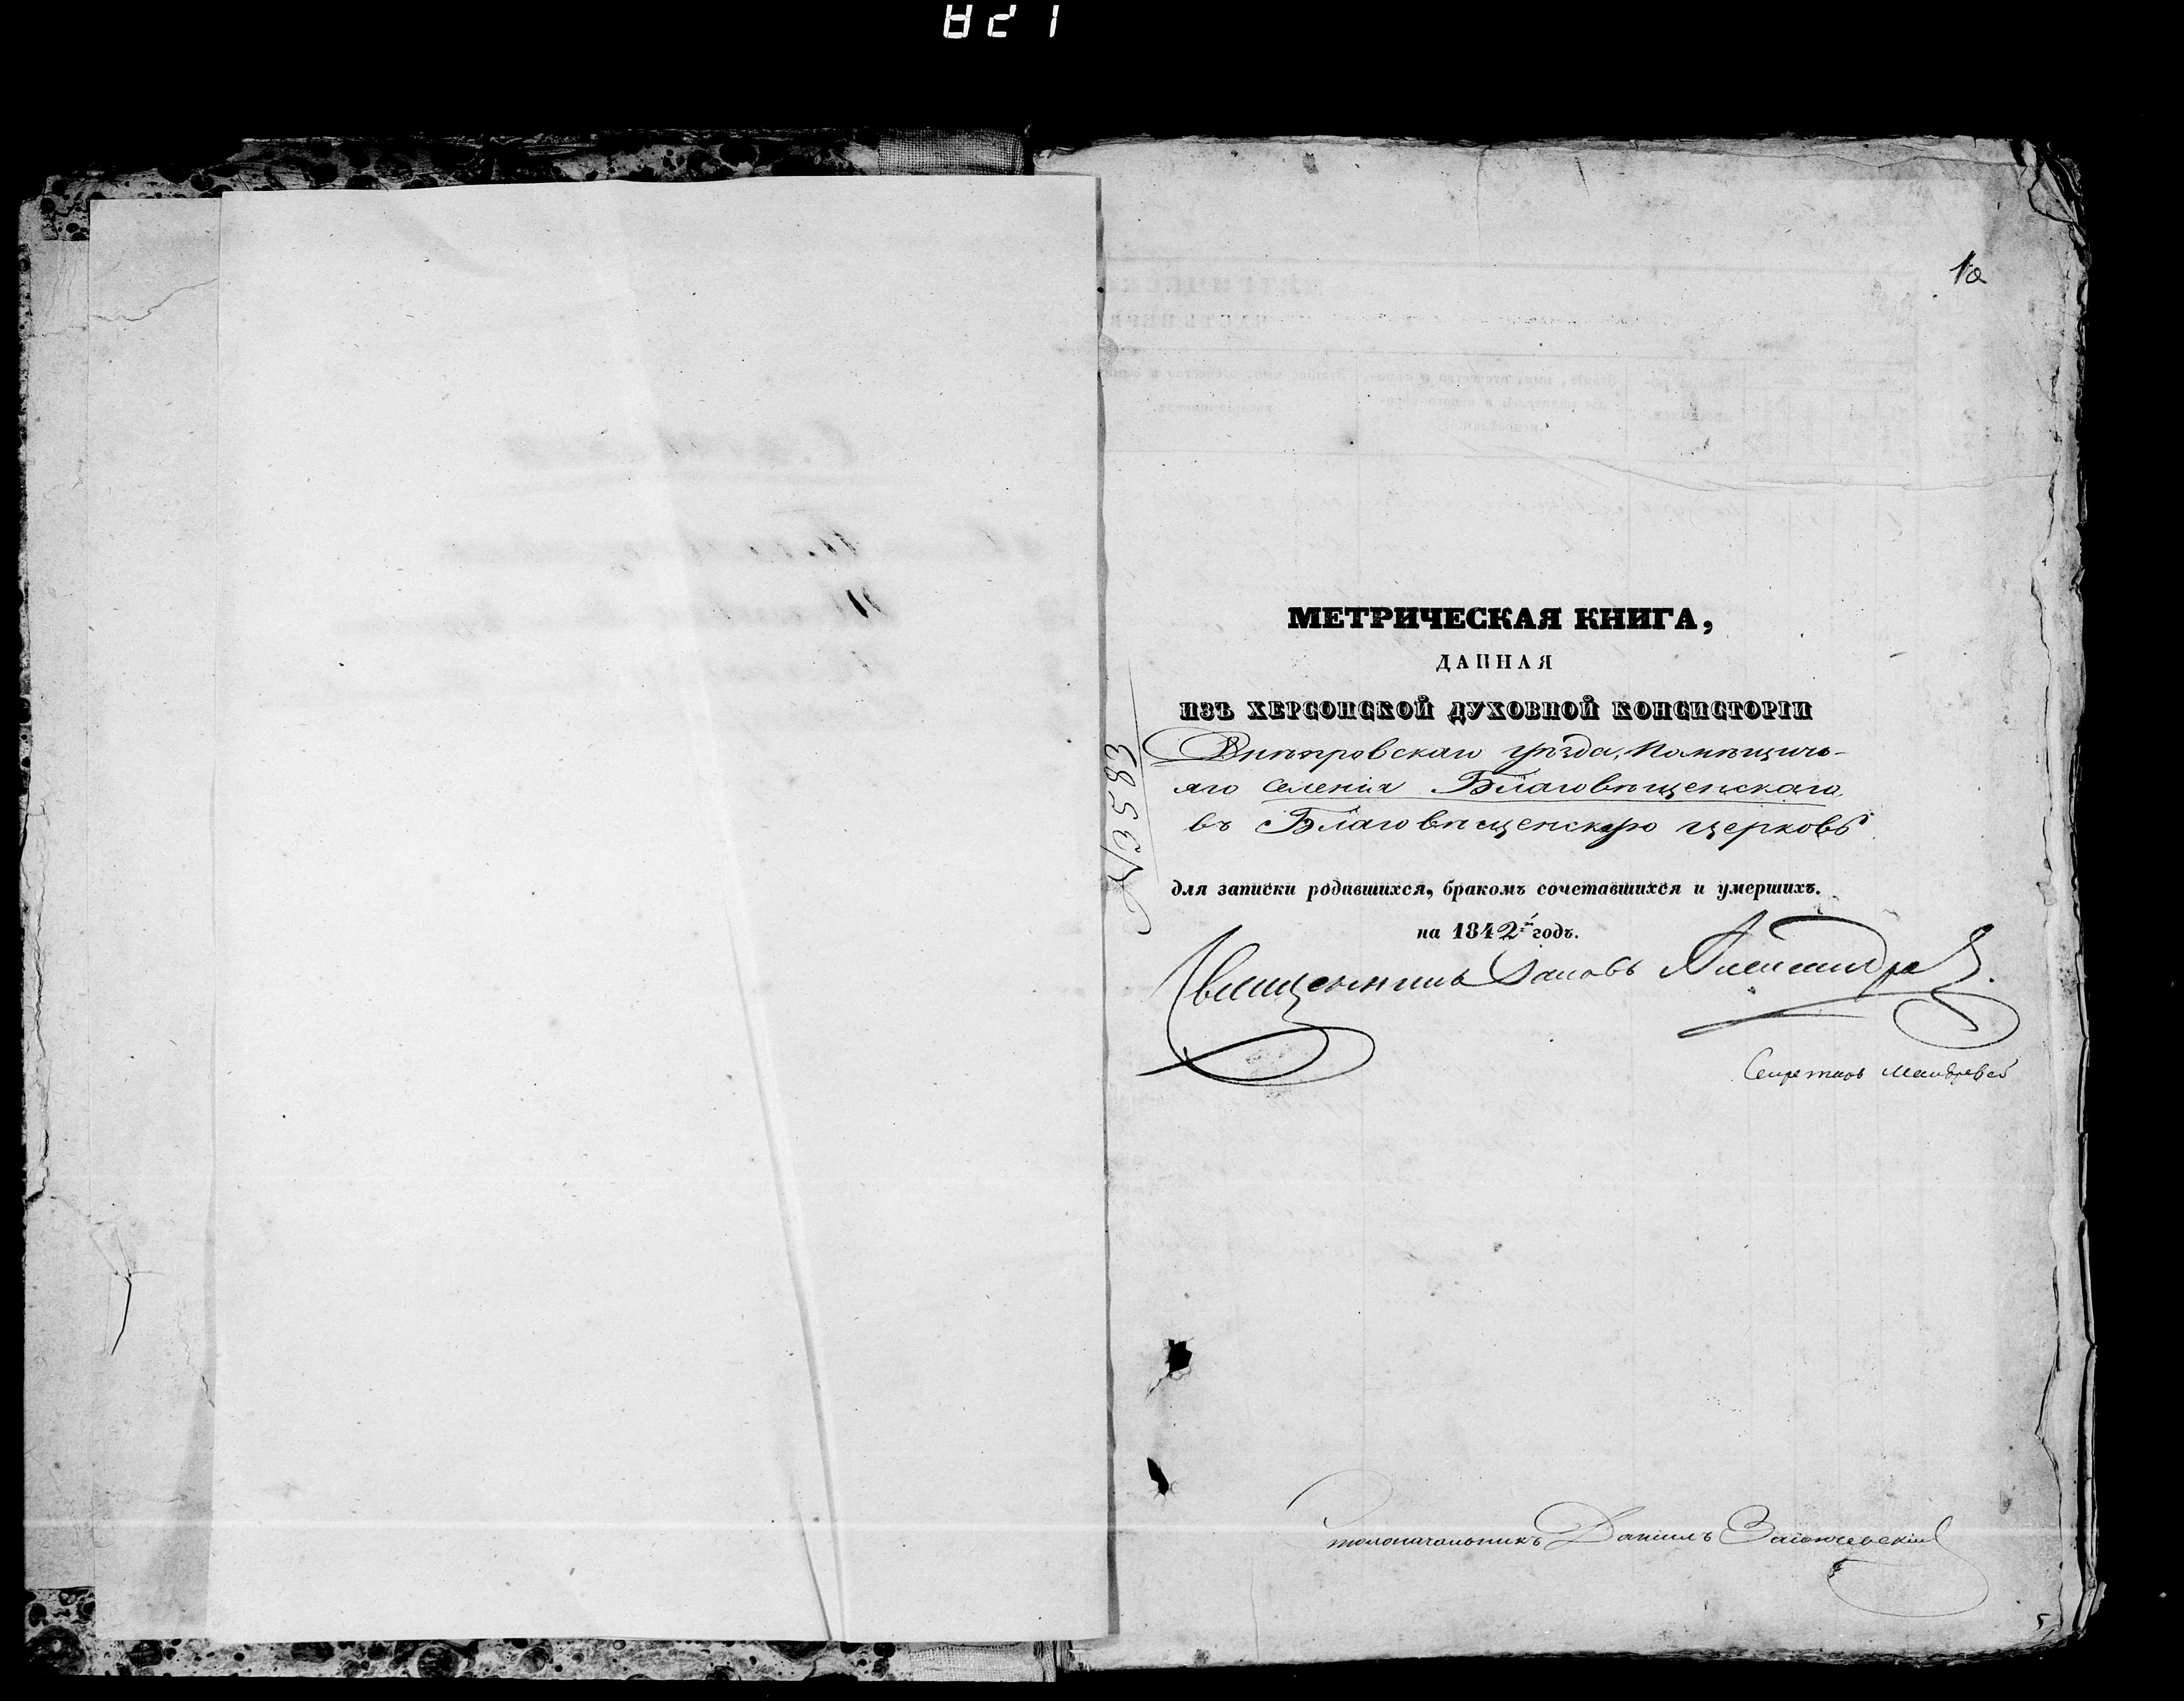 1а
МЕТРИЧЕСКАЯ КНИГА,
ДАННАЯ
ИЗЪ ХЕРСОНСКОЙ ДУХОВНОЙ КОНСИСТОРІИ
Днѣпровскаго уѣзда, Помѣщичь-
яго селенія Благовѣщенскаго
въ Благовѣщенскую церковь
№3583
для записки родившихся, бракомъ сочетавшихся и умершихъ.
на 1842й годъ.
Священникъ Іаковъ
Секретарь
Столоначальникъ Даніилъ